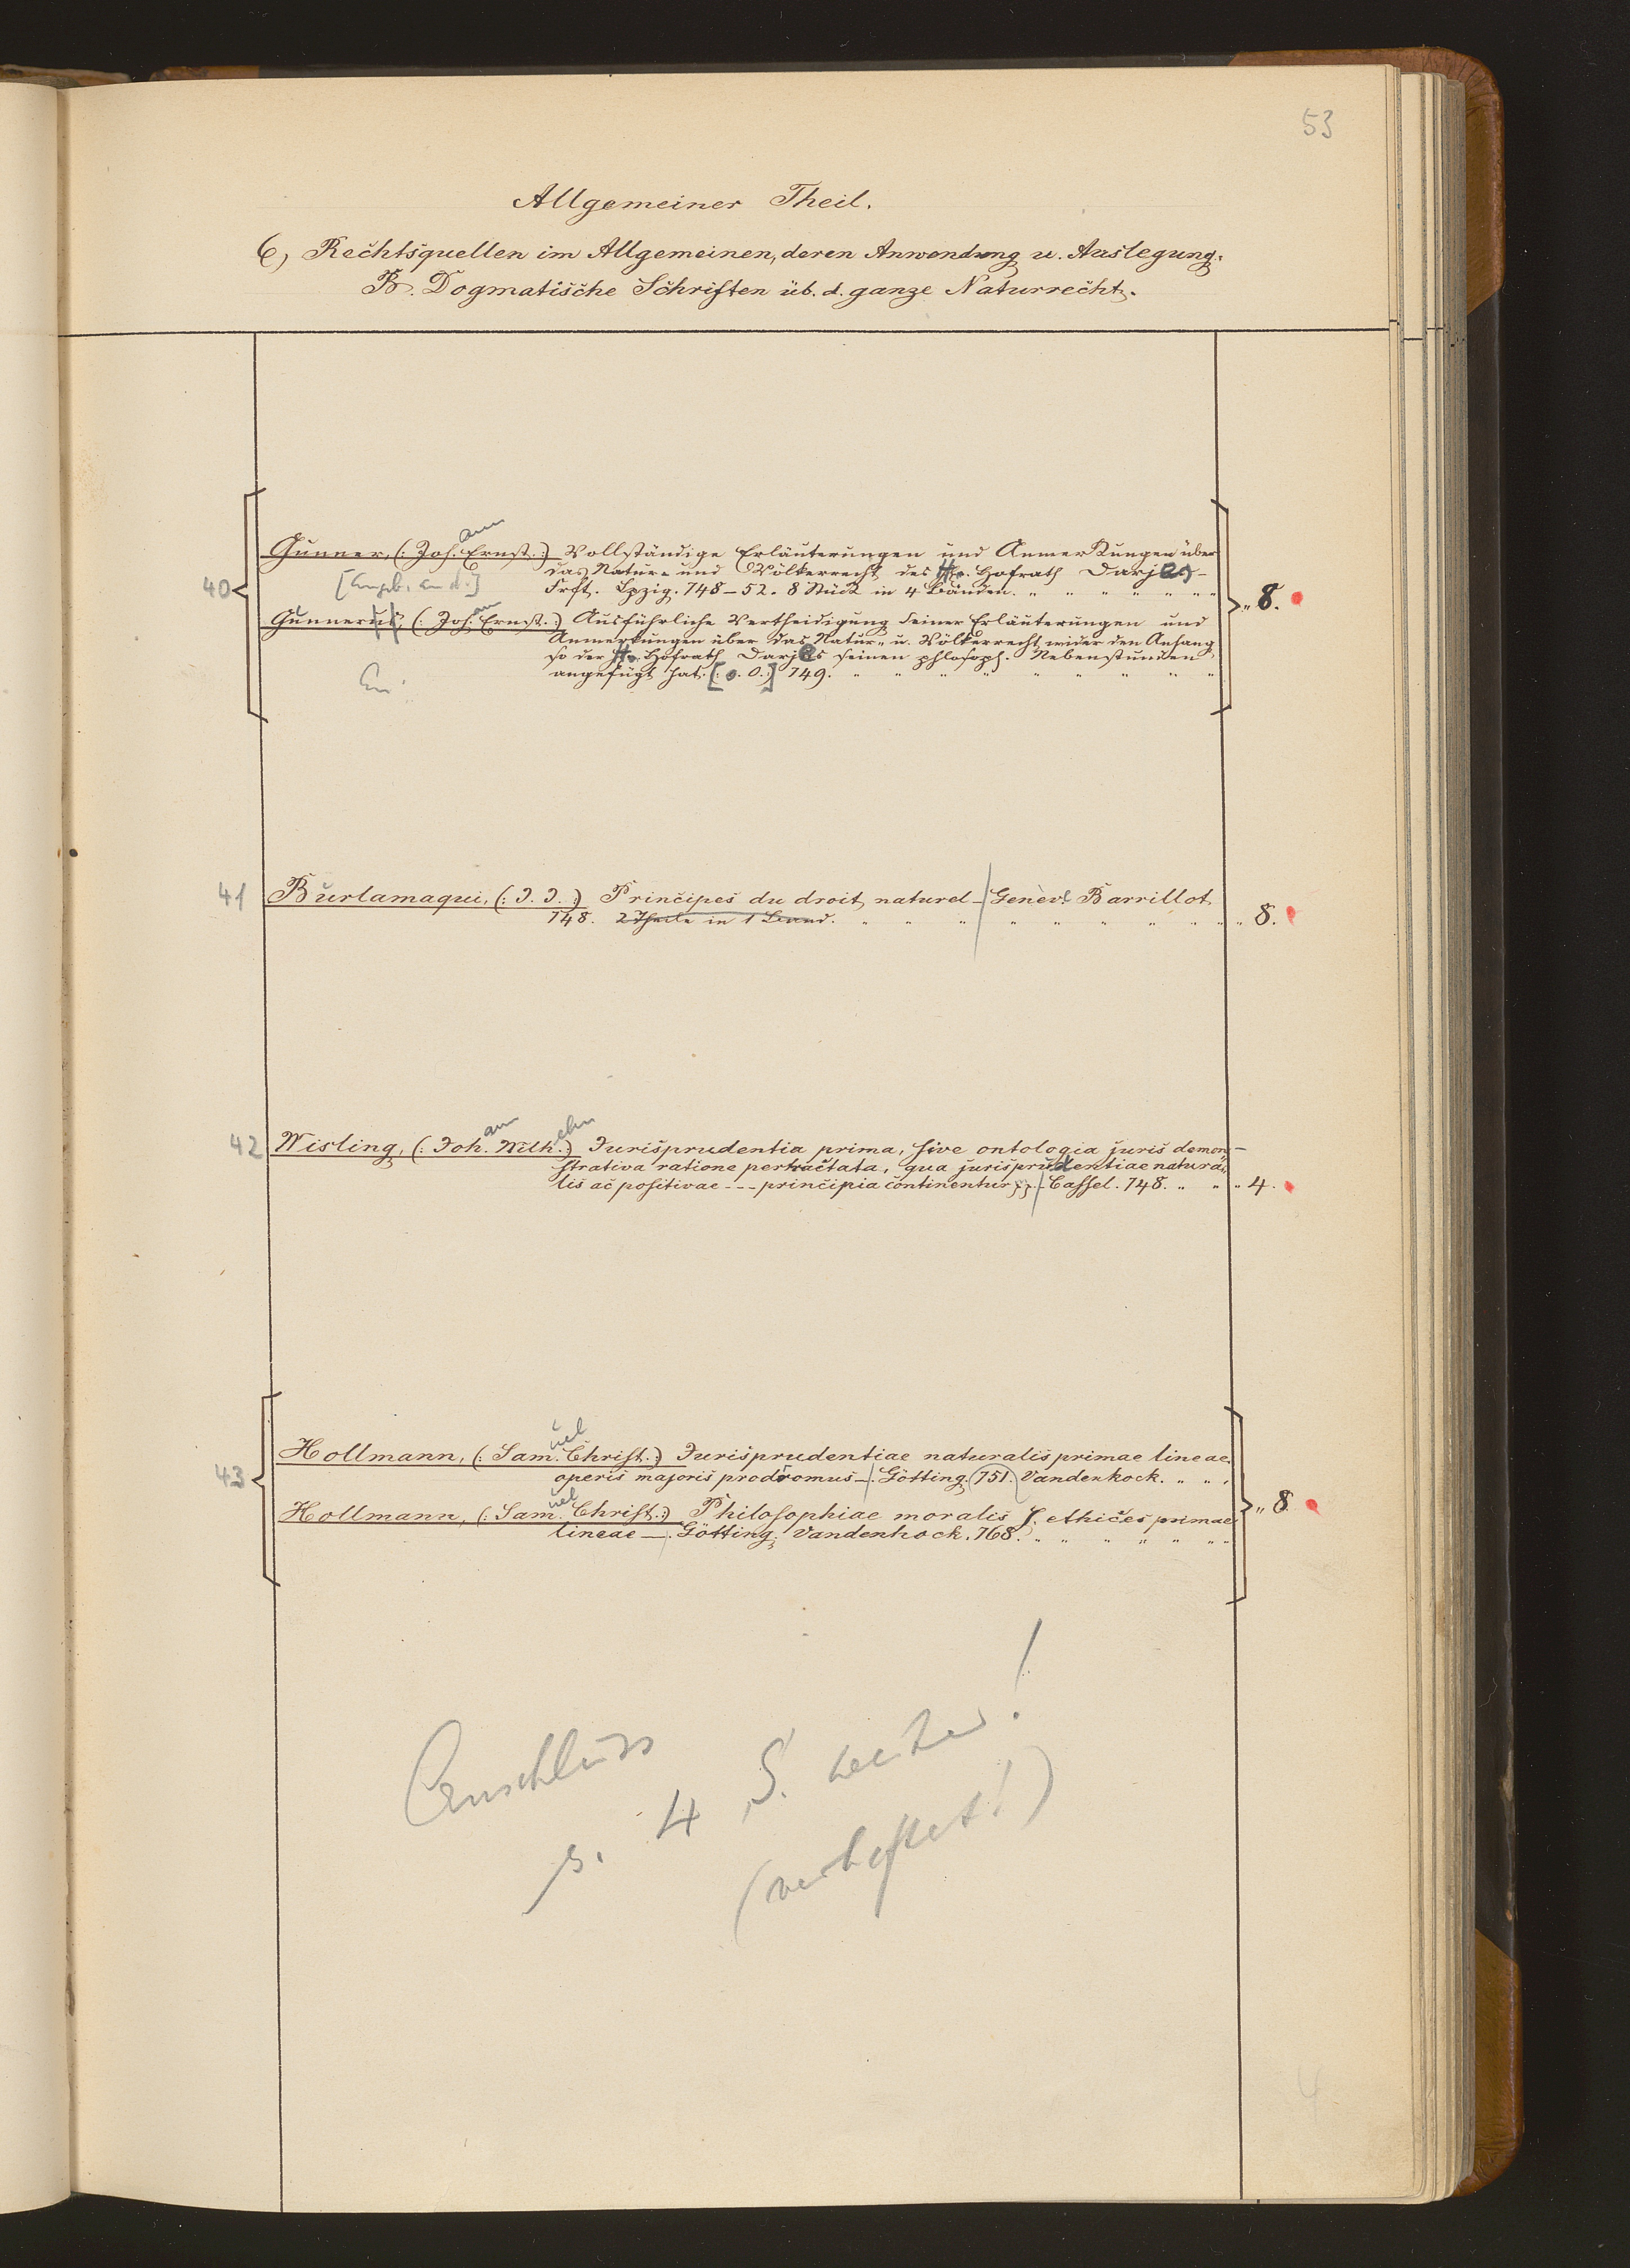 53
Allgemeiner Theil.
6, Rechtsquellen im Allgemeinen, deren Anwendung u. Auslegung.
B. Dogmatische Schriften üb. d. ganze Naturrecht.
40
Gunner, (: Joh.ann Ernst. :) Vollständige Erläuterungen und Anmerkungen über
das Natur- und Völkerrecht des Hr. Hofrath Darjes –
[Angeb. an d.] Frft. Lpzig. 748–52. 8 Stück in 4 Bänden. " " " " " " " 8.
Gunnerus, (: Joh.an Ernst. :) Ausführliche Vertheidigung seiner Erläuterungen und
Anmerkungen über das Natur- u. Völkerrecht wider den Anhang
so der Hr. Hofrath Darjes seinen phlosoph. Nebenstunden
angefügt hat. [: o. O. :] 749. " " " " " " " " "
41 Burlamaqui, (: J. J. :) Principes du droit naturel – Genève Barrillot.
748. 2 Theile in 1 Band. " " " " " " " " " 8.
42 Wisling, (: Joh.ann Wilh.elm :) Jurisprudentia prima, sive ontologia juris demon-
strativa ratione pertractata, qua jurisprudentiae natura-
lis ac positivae --- principia continentur – Cassel. 748. " " " 4.
43
Hollmann, (: Sam.uel Christ. :) Jurisprudentiae naturalis primae lineae,
operis majoris prodromus – Götting. 751. Vandenhock. " " "
" 8
Hollmann, (: Sam.uel Christ. :) Philosophiae moralis s. ethices primae
lineae – Götting. Vandenhock. 768. " " " " " " "
Anschluss
s. 4 S. weiter!
(verheftet!)
4